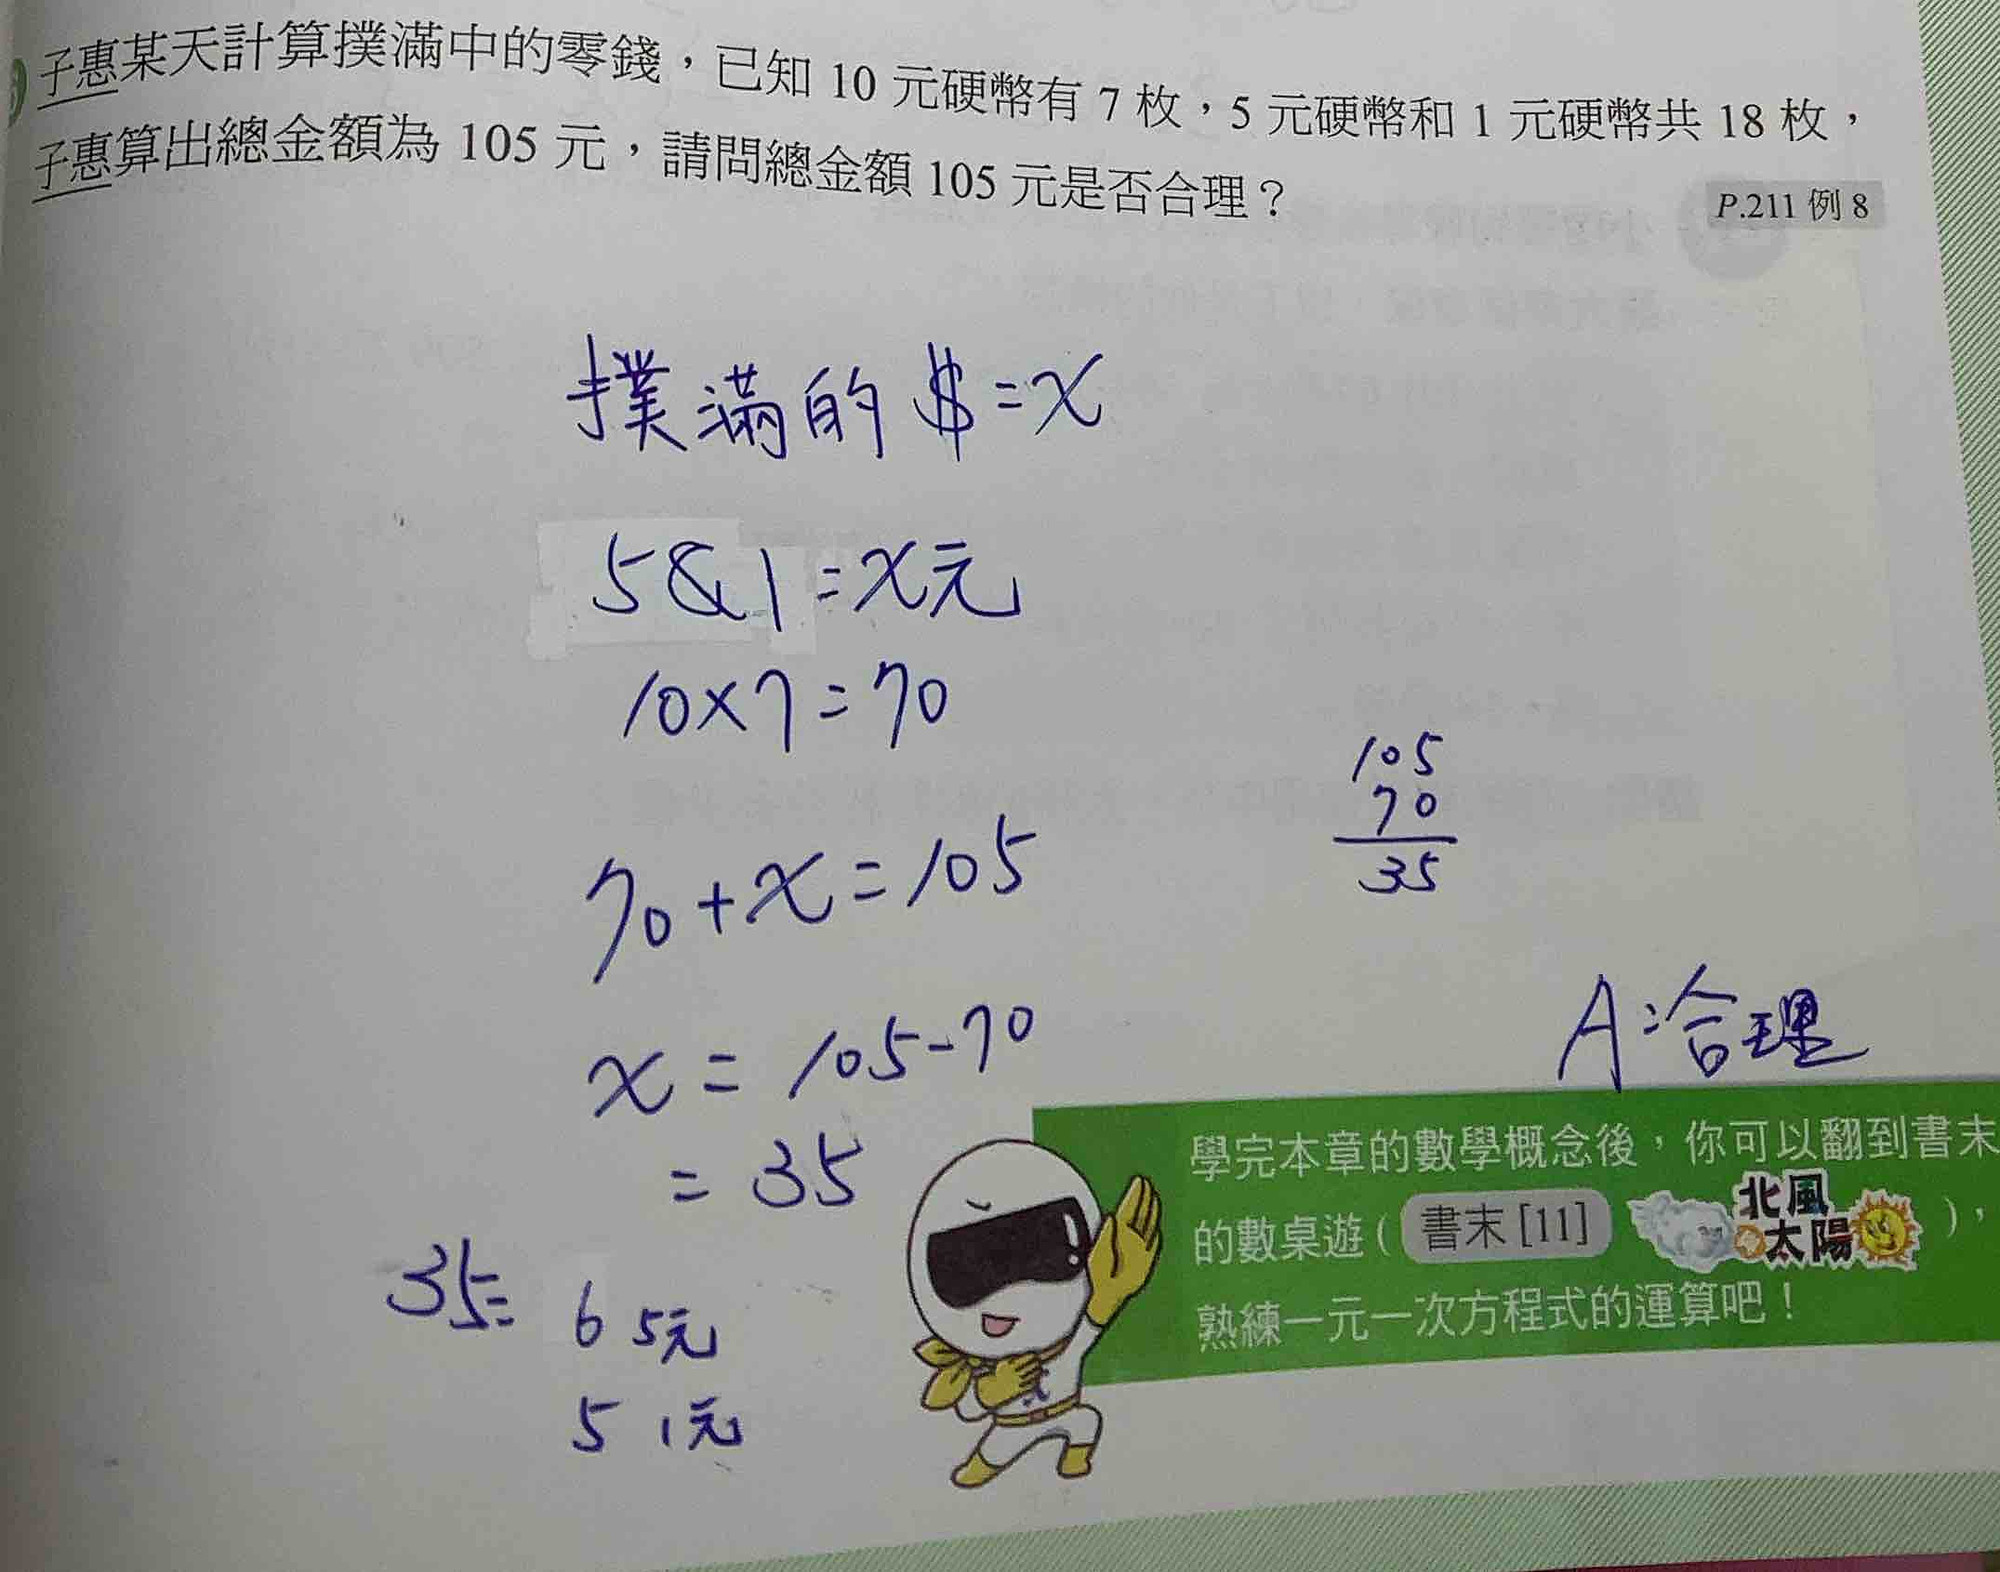 子惠某天計算撲滿中的零錢，已知 10 元硬幣有 7 枚，5 元硬幣和 1 元硬幣共 18 枚，
子惠算出總金額為 105 元，請問總金額 105 元是否合理？
P.211 例 8
撲滿的 $=x
5&1=x元
10×7=70
105
70
35
70+x=105
x = 105-70
= 35
A:合理
35= 6 5元
5 1元
學完本章的數學概念後，你可以翻到書末
的數桌遊(書末[11] 北風太陽)，
熟練一元一次方程式的運算吧！